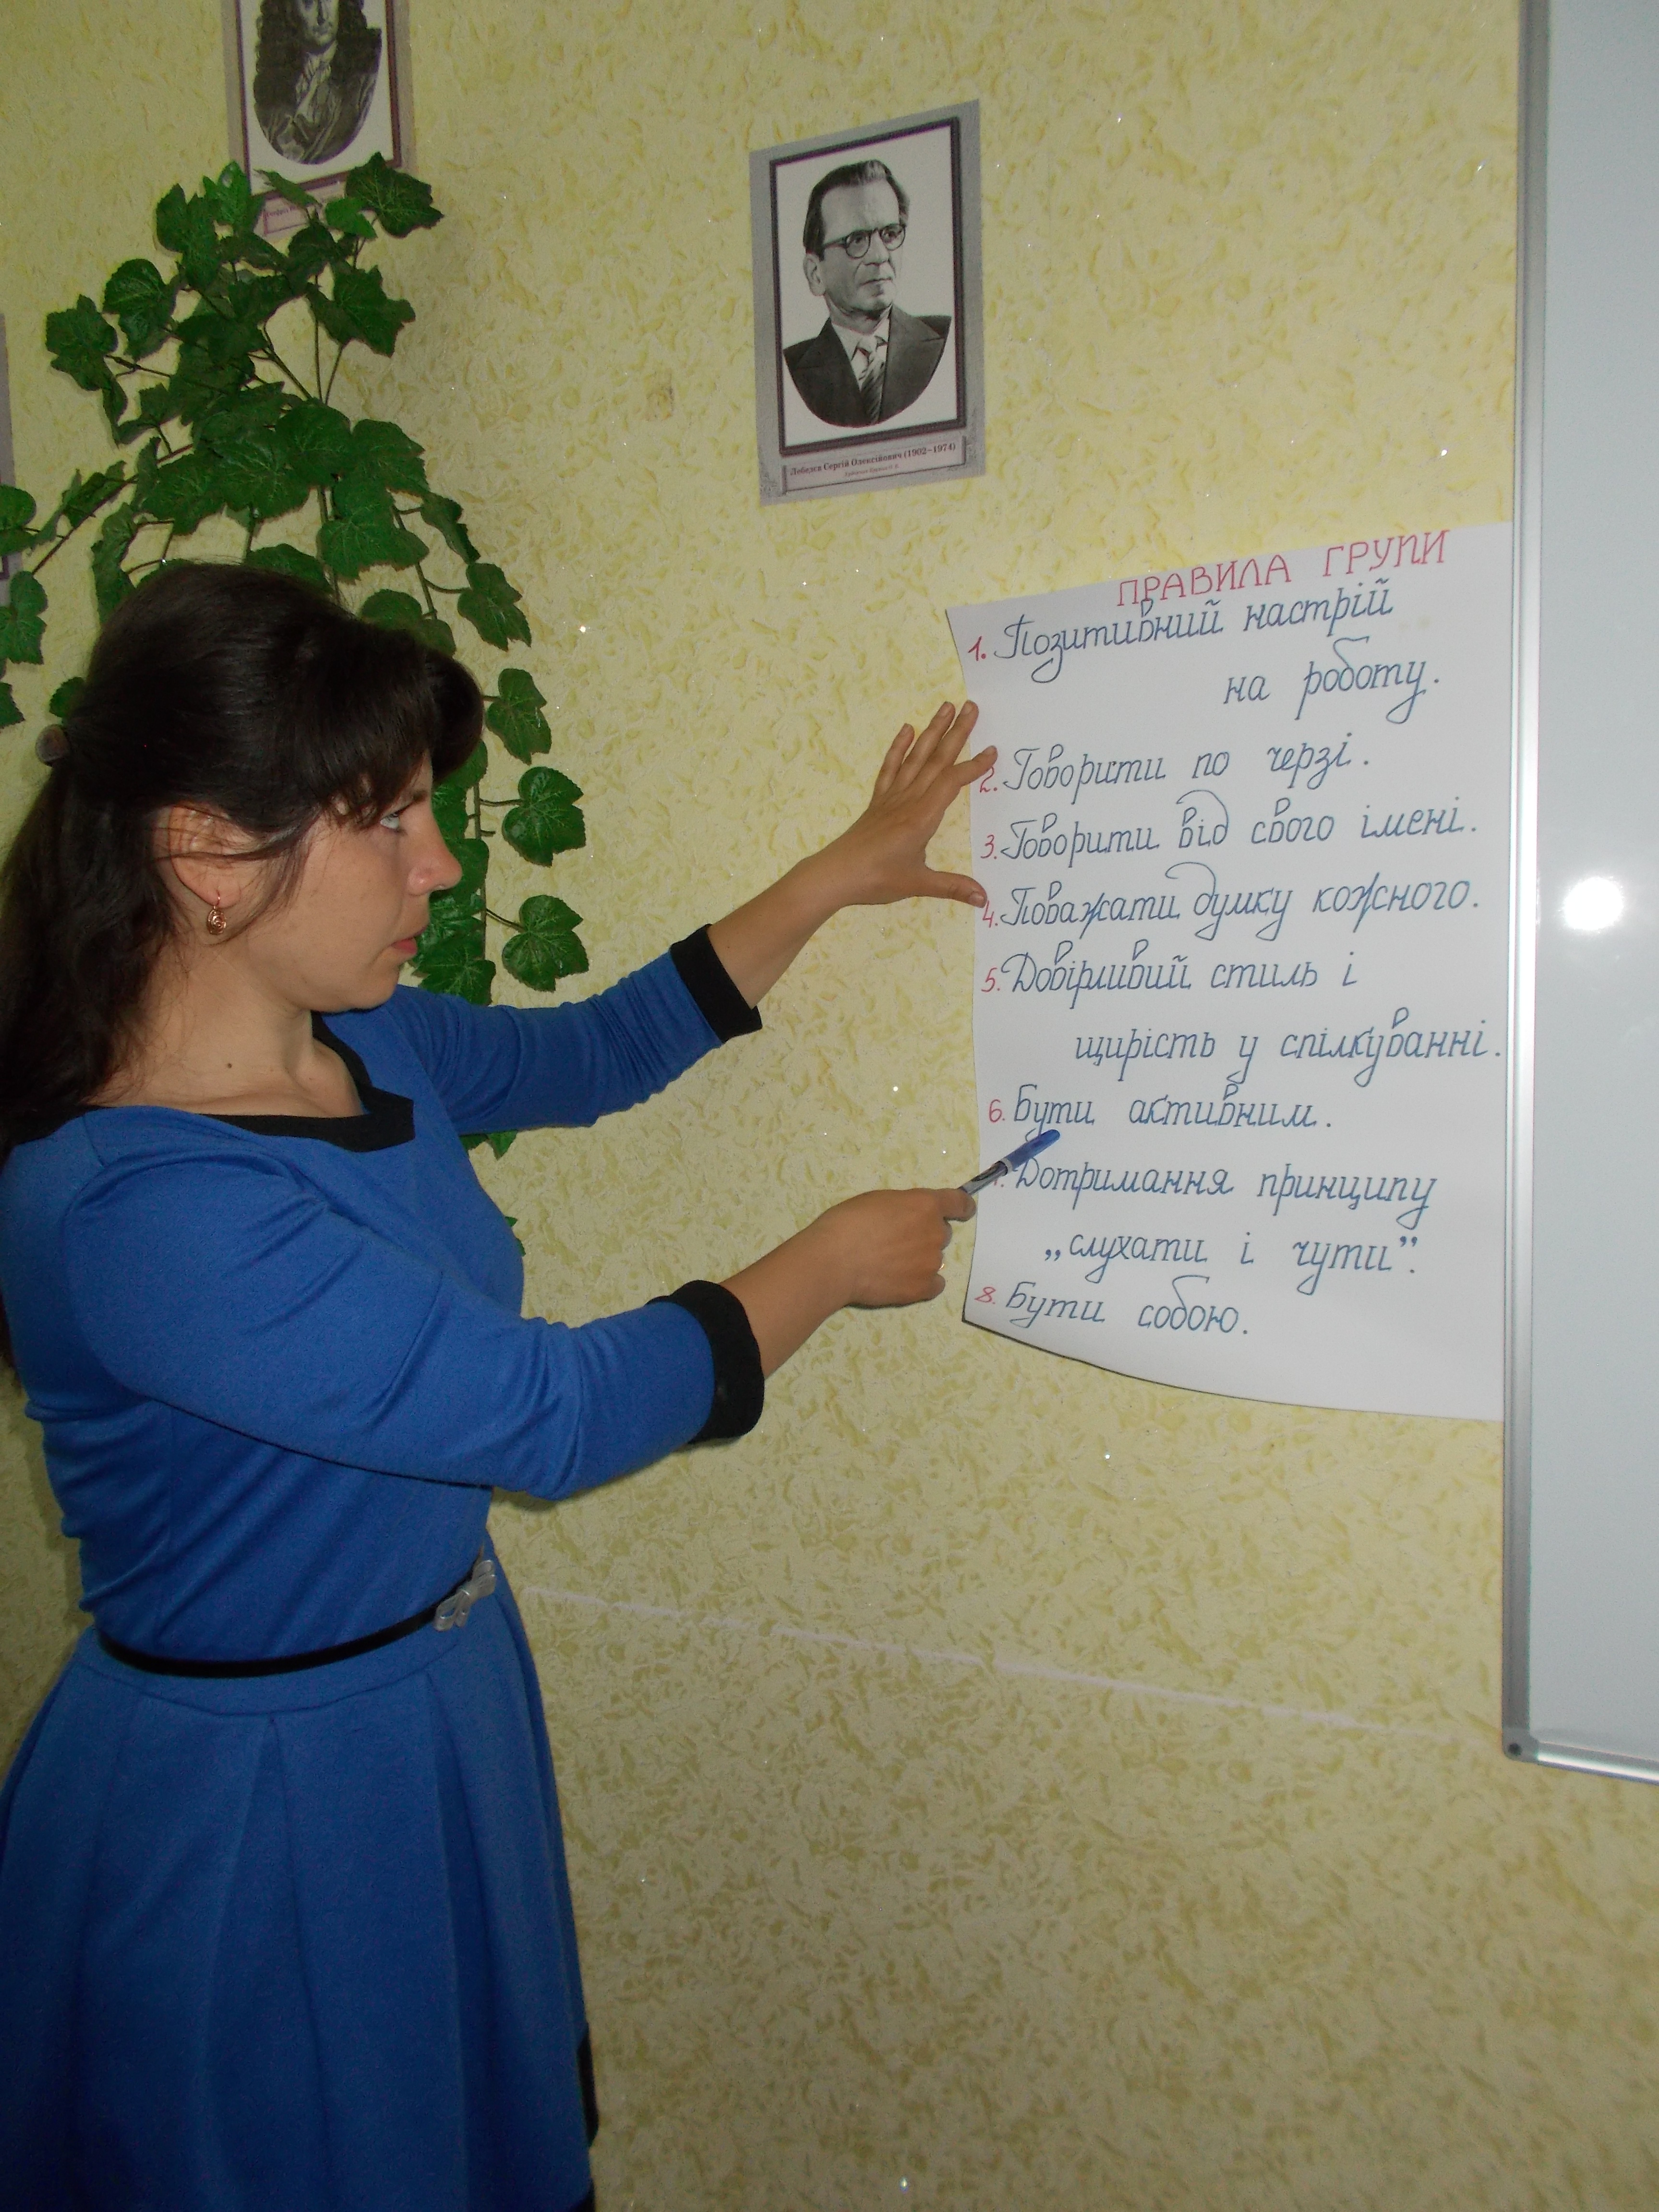 Лебедєв Сергій Олексійович (1902–1974)
ПРАВИЛА ГРУПИ
1. Позитивний настрій
на роботу.
2. Говорити по черзі.
3. Говорити від свого імені.
4. Поважати думку кожного.
5. Довірливий стиль і
щирість у спілкуванні.
6. Бути активним.
Дотримання принципу
„слухати і чути”.
8. Бути собою.